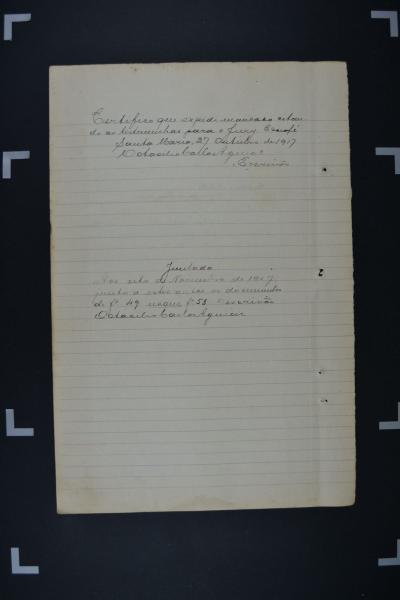 Certifico que expedi mandado citan
do as testemunhas para o jury. Dou fé
Santa Maria, 27 Outubro de 1917
Octacilio Carlos Aguiar
Escrivão
Juntada
Aos oito de Novembro de 1917,
junto a estes autos os documentos
de fs 49 usque fs 53. Escrivão
Octacilio Carlos Aguiar